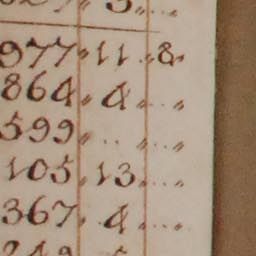 977 „ 11 „ 8 „
864 „ 4 „ .. „
599 „ .. „ .. „
105 „ 13 „ .. „
367 „ 4 „ .. „